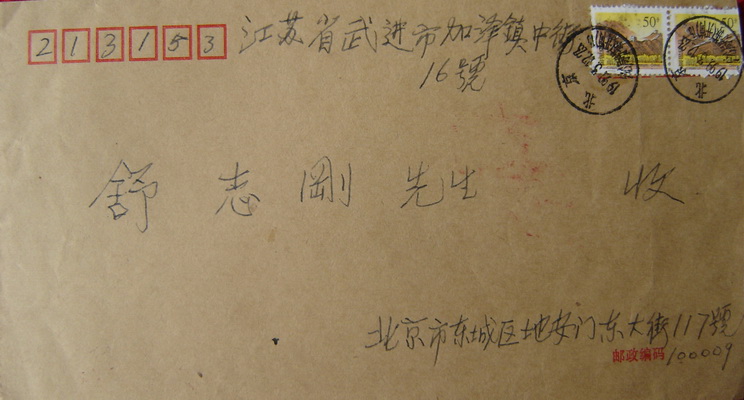 213153 江苏省武进市加泽镇中街
16號
舒志剛先生 收
北京市东城区地安门东大街117號
邮政编码 100009
50
50
北京
北京